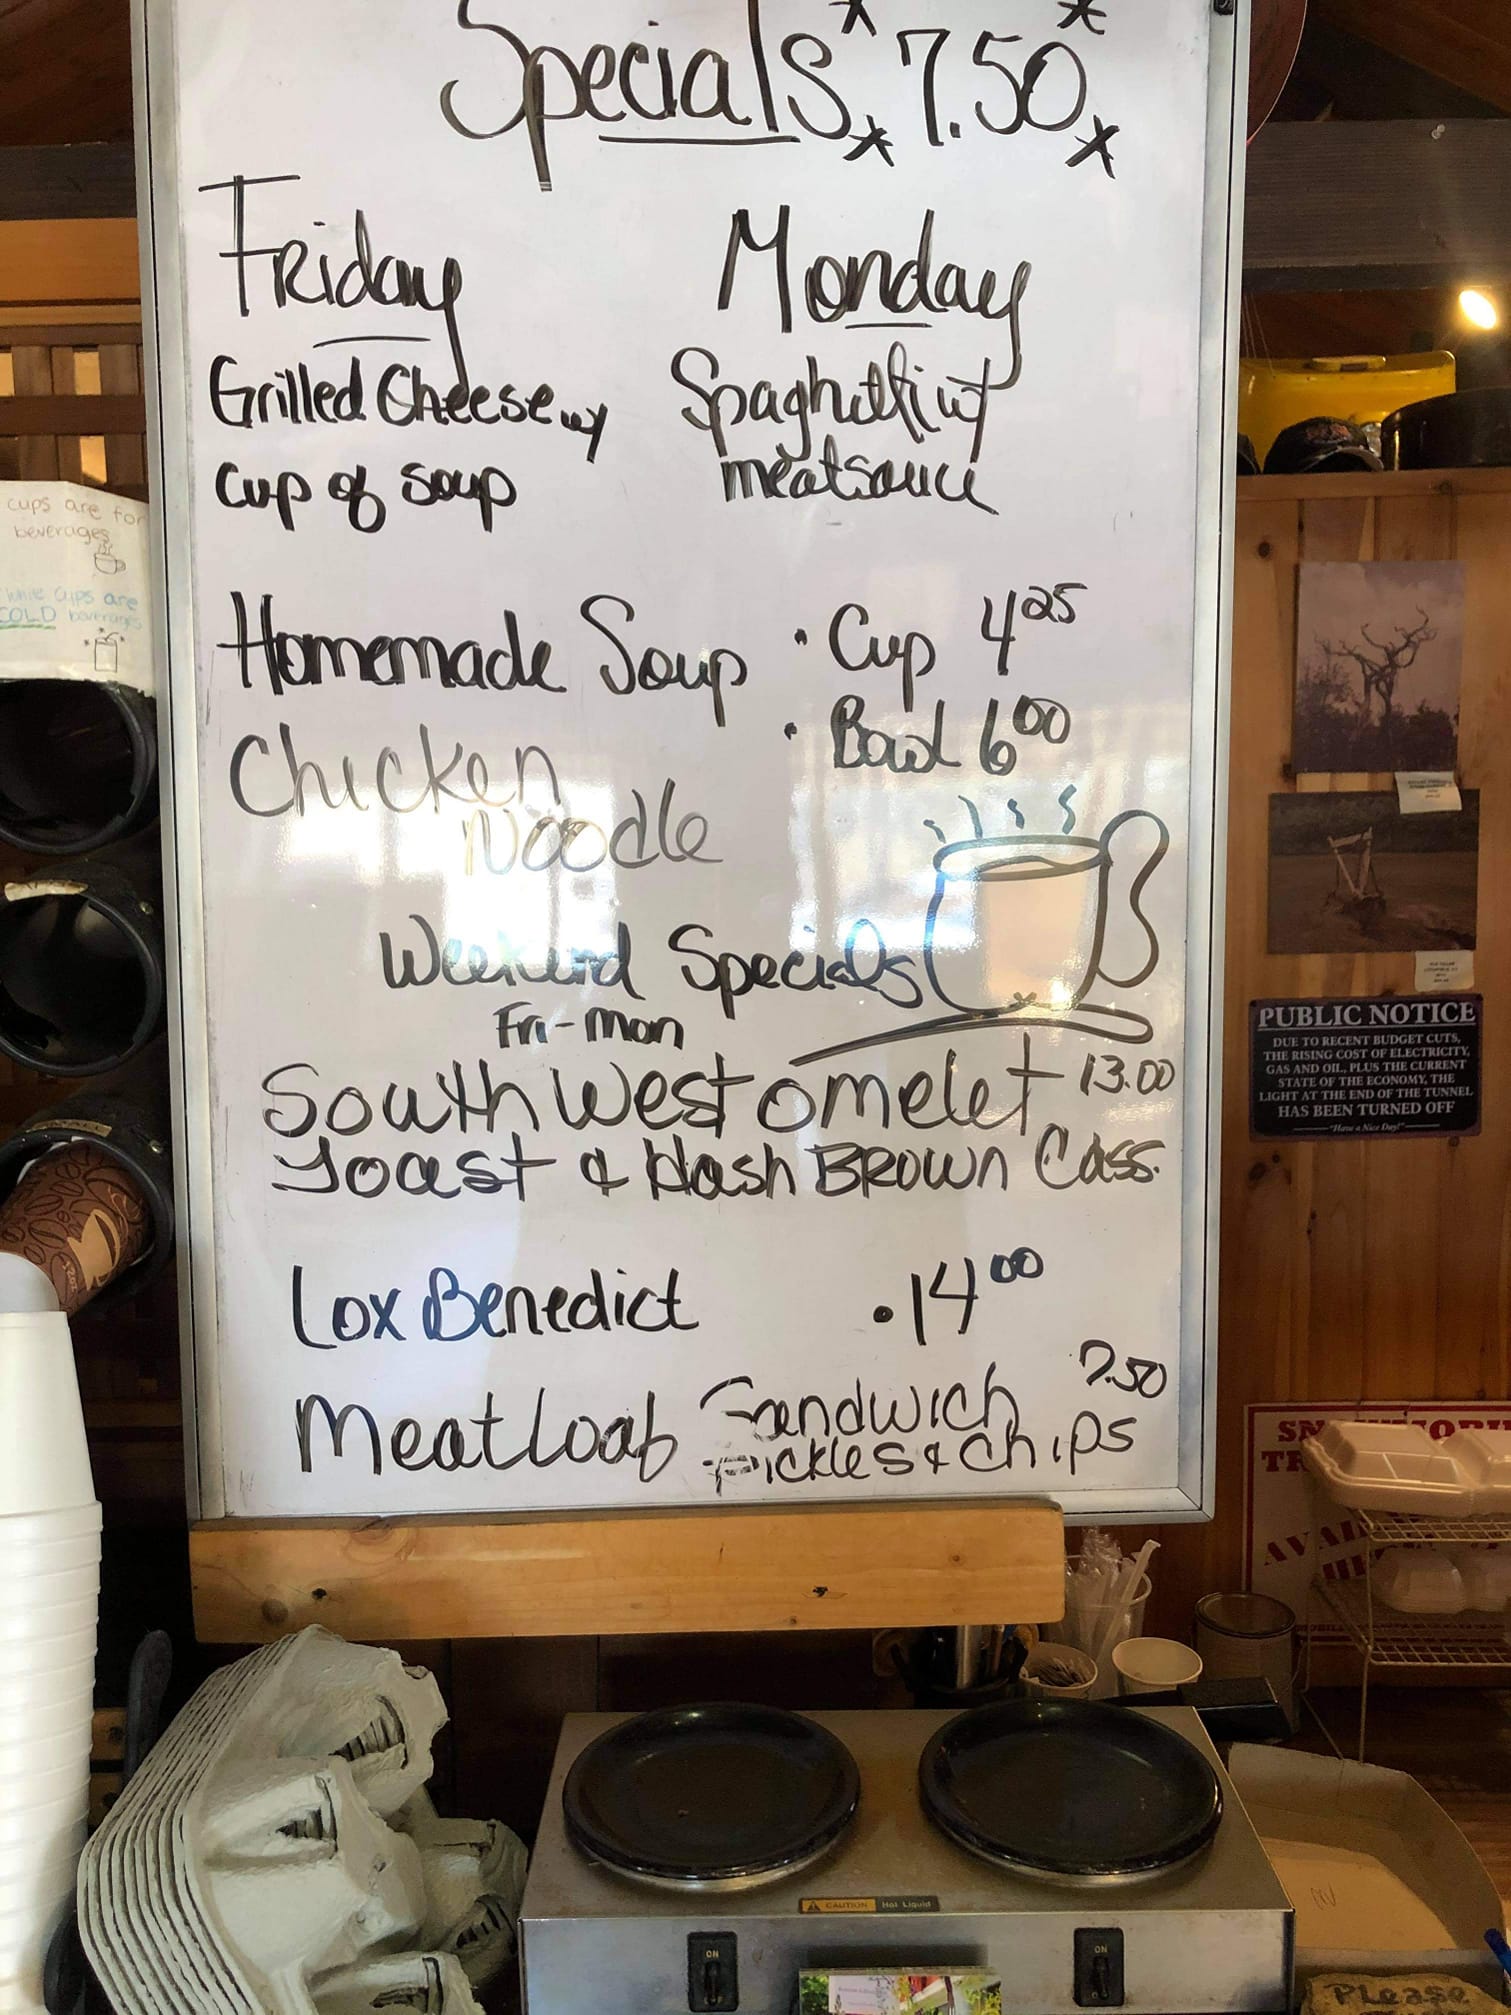 Specials * 7.50 *
* *
Friday
Grilled Cheese w/
cup of soup
Monday
Spaghetti w/
meatsauce
Homemade Soup · Cup 4.25
· Bowl 6.00
Chicken
Noodle
Weekend Specials
Fri-Mon
South West omelet 13.00
Toast & Hash BROWN Cass.
Lox Benedict .14.00
Meatloaf Sandwich 7.50
Pickles & chips
cups are for
beverages
White cups are
COLD beverages
PUBLIC NOTICE
DUE TO RECENT BUDGET CUTS,
THE RISING COST OF ELECTRICITY,
GAS AND OIL, PLUS THE CURRENT
STATE OF THE ECONOMY, THE
LIGHT AT THE END OF THE TUNNEL
HAS BEEN TURNED OFF
"Have a Nice Day!"
12oz
CAUTION Hot Liquid
ON
ON
PLEASE